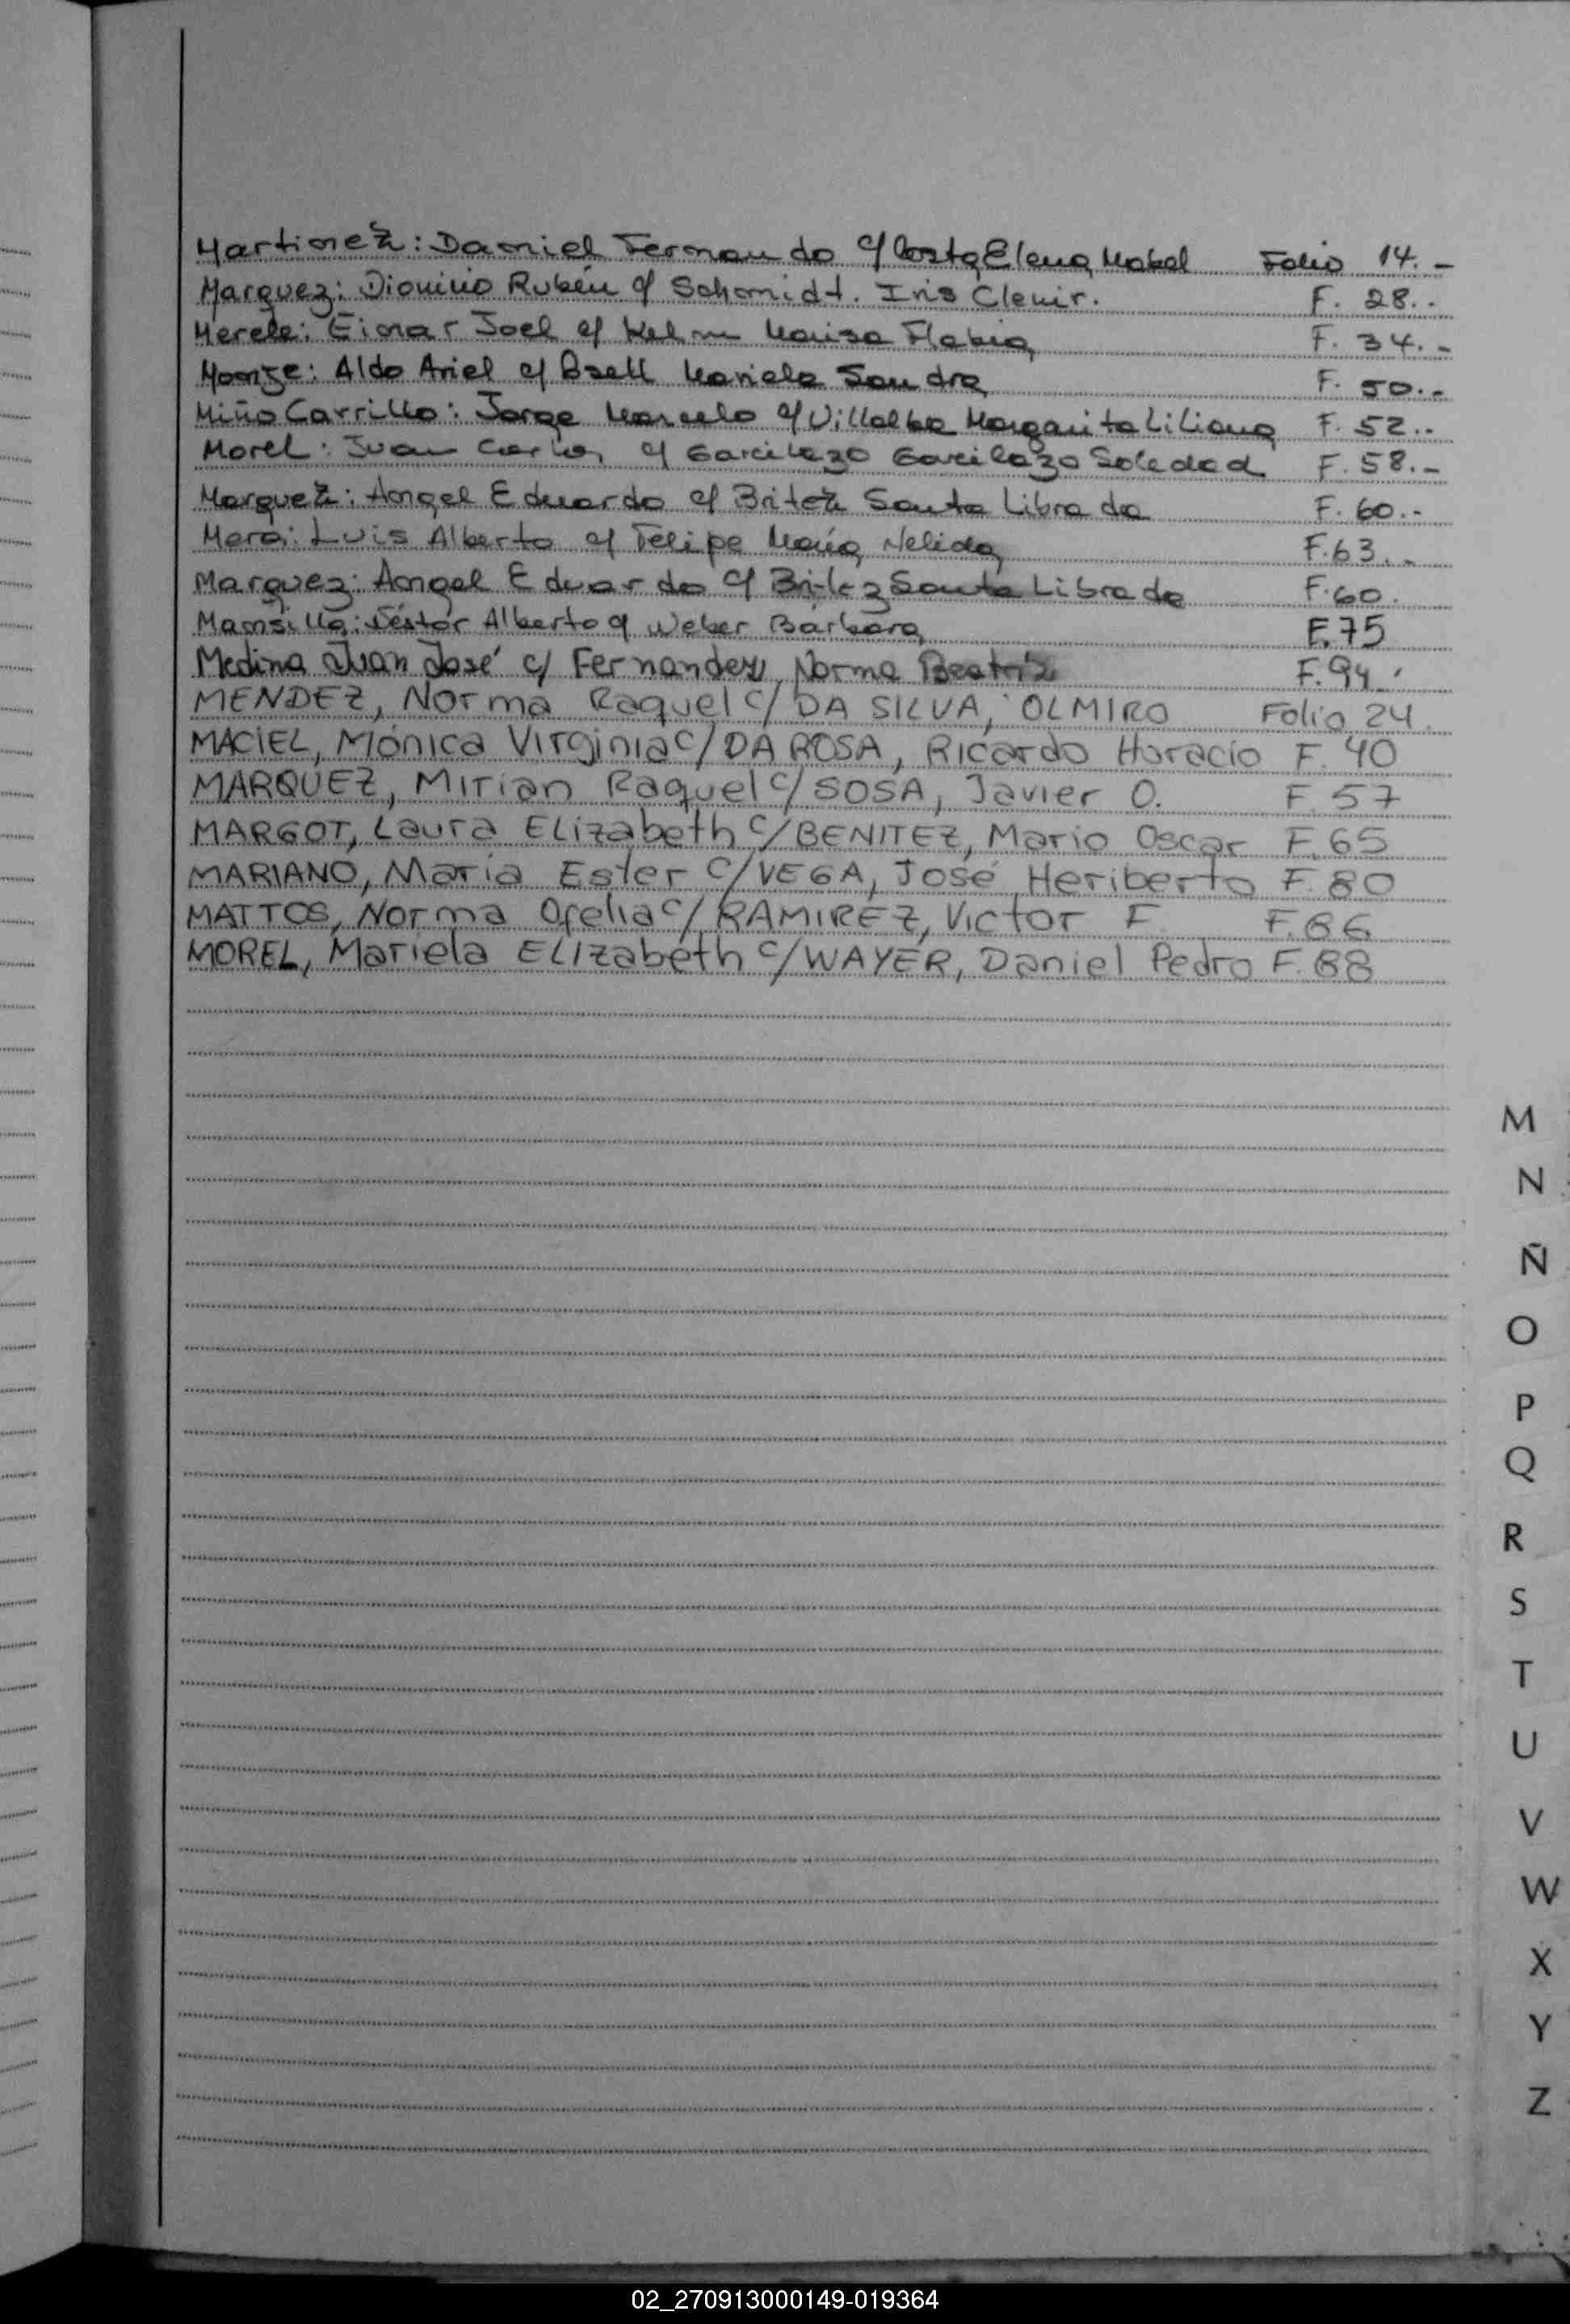 Martinez: Daniel Fernando c/ Costa Elena Mabel Folio 14.-
Marquez: Dionicio Rubén c/ Schmidt. Iris Clenir. F. 28..
Merele: Einar Joel c/ Kelm Marisa Flabia F. 34.-
Aldo Ariel c/ Mariela Sandra F. 50.-
Miño Carrillo: Jorge Marcelo c/ Villalba Margarita Liliana F. 52..
Morel: Juan Carlos c/ Garcilazo Garcilazo Soledad F. 58.-
Marquez: Angel Eduardo c/ Britez Santa Librada F. 60.-
Luis Alberto c/ Felipe María Nelida F. 63..
Marquez: Angel Eduardo c/ Britez Santa Librada F. 60.
Mansilla: Néstor Alberto c/ Weber Barbara F. 75
Medina Juan José c/ Fernandez, Norma Beatriz F. 94.
MENDEZ, Norma Raquel c/ DA SILVA, OLMIRO Folio 24.
MACIEL, Mónica Virginia c/ DA ROSA, Ricardo Horacio F. 40
MARQUEZ, Mirian Raquel c/ SOSA, Javier O. F. 57
MARGOT, Laura Elizabeth c/ BENITEZ, Mario Oscar F. 65
MARIANO, María Ester c/ VEGA, José Heriberto F. 80
MATTOS, Norma Ofelia c/ RAMIREZ, Victor F. F. 86
MOREL, Mariela Elizabeth c/ WAYER, Daniel Pedro F. 88
M
N
Ñ
O
P
Q
R
S
T
U
V
W
X
Y
Z
02_270913000149-019364